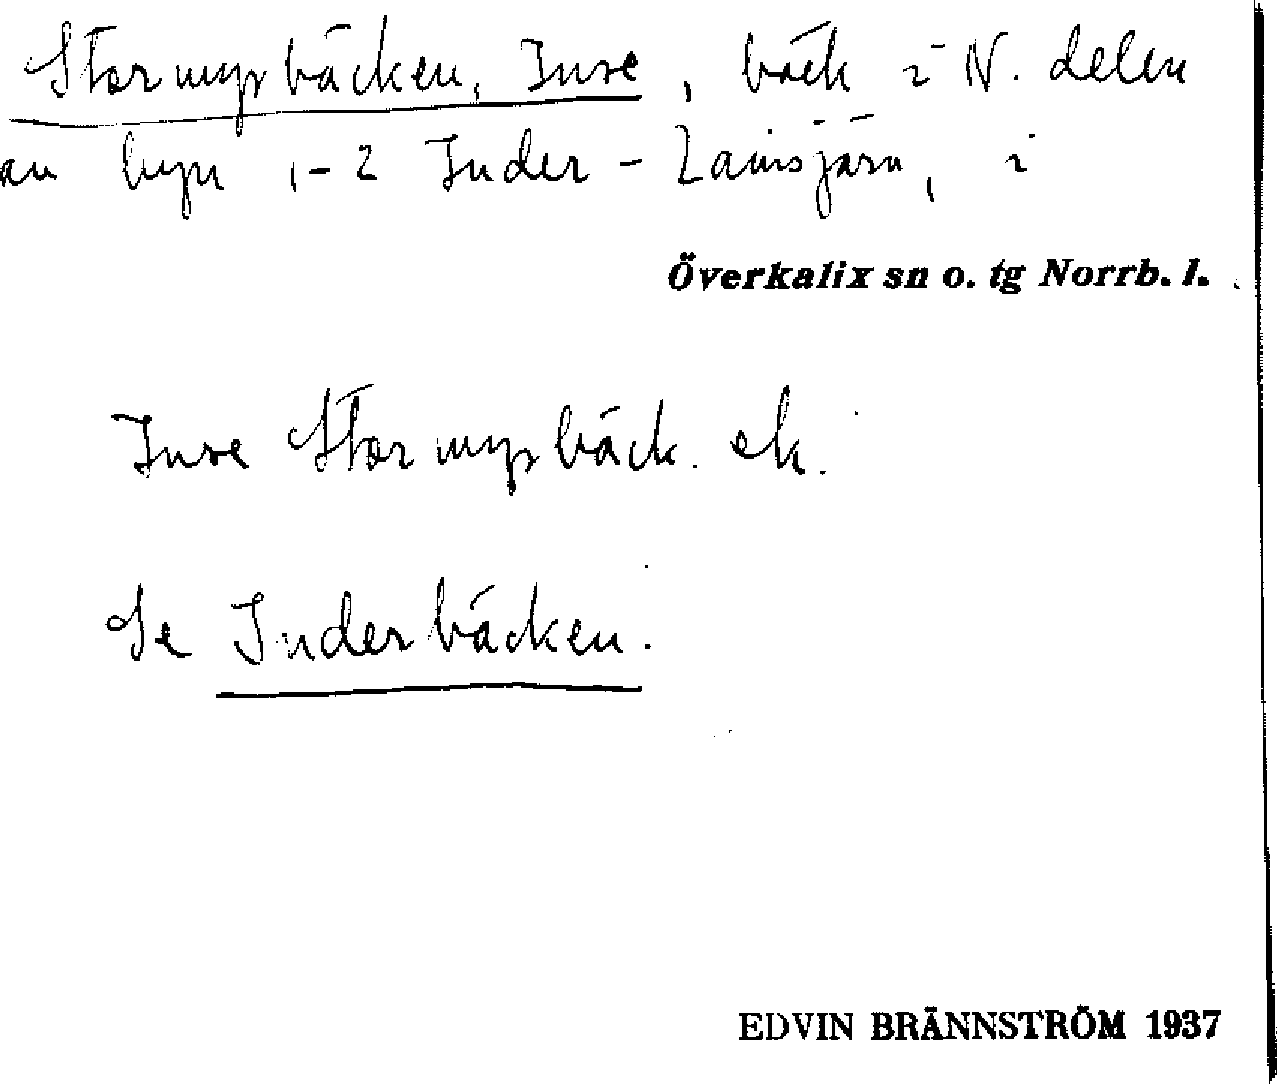 Stormyrbäcken, Inre, bäck i N. delen
av byn 1-2 Inder-Lansjärv, i
Överkalix sn o. tg Norrb. l.
Inre Stormyrbäck. ek.
Se Inderbäcken.
EDVIN BRÄNNSTRÖM 1937